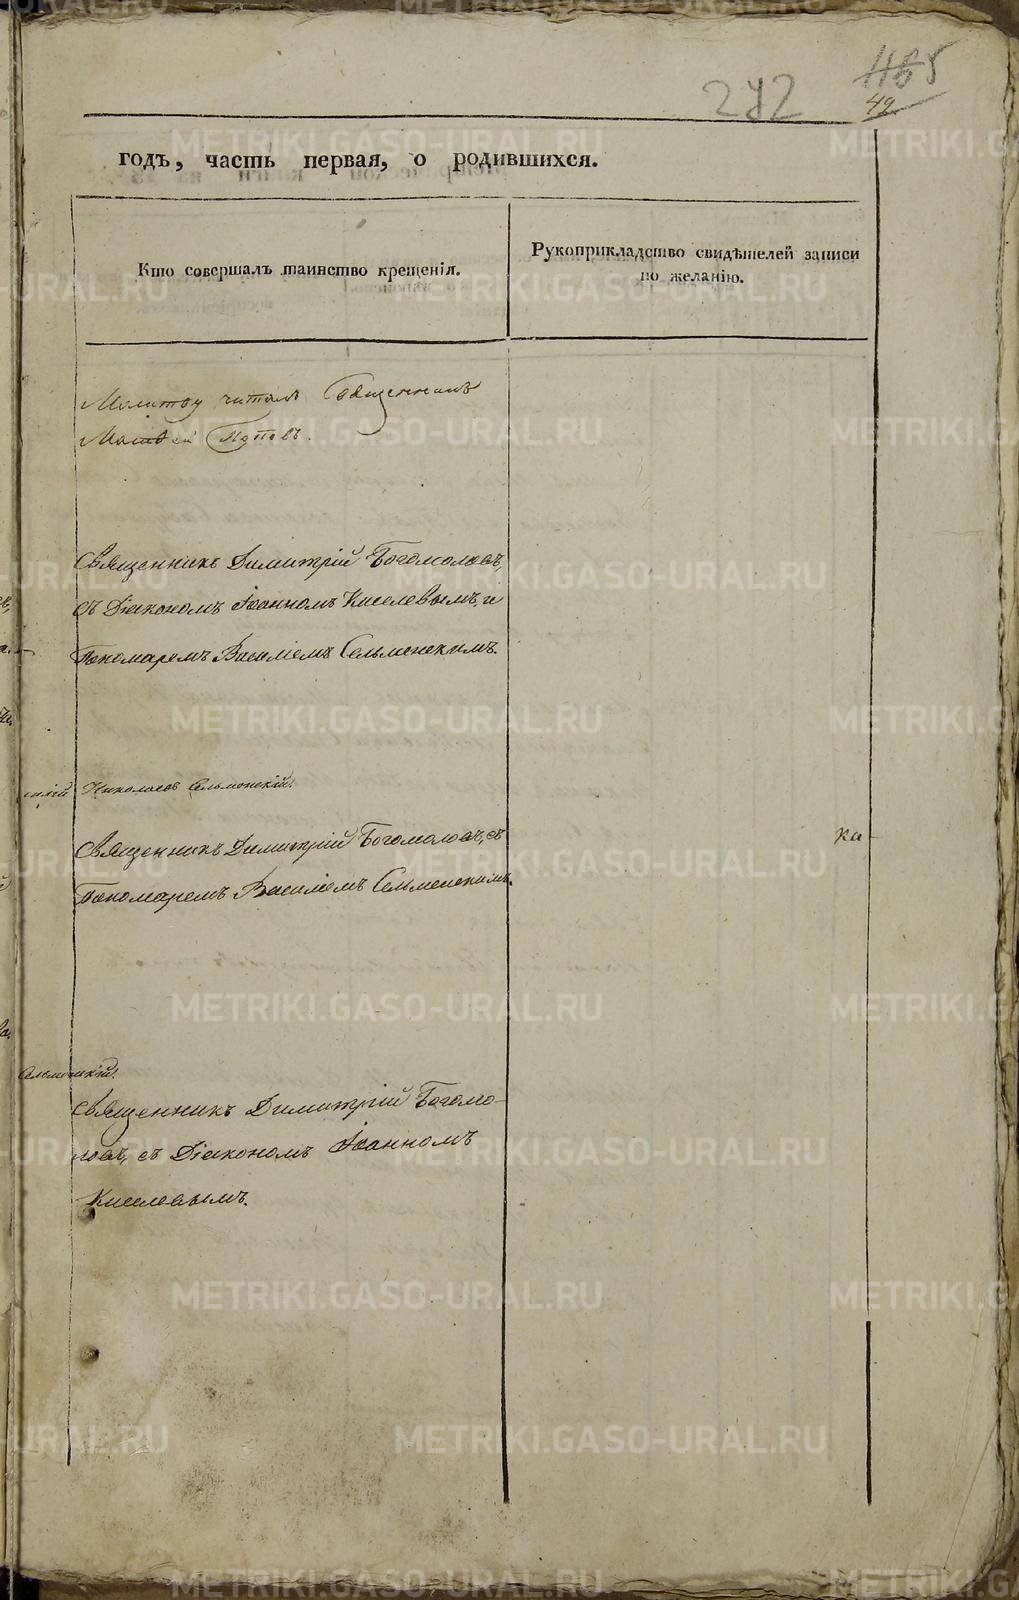 272
465
49
годъ, часть первая, о родившихся.
Кто совершалъ таинство крещенія.
Рукоприкладство свидѣтелей записи
по желанію.
Молитву читалъ Священникъ
Матвей Поповъ.
Священникъ Димитрій Богомоловъ,
съ Діакономъ Іоанномъ Киселевымъ, и
Пономаремъ Василіемъ Сельменскимъ.
Николаевъ Сельменскій.
Священникъ Димитрій Богомоловъ, съ
ка
Пономаремъ Василіемъ Сельменскимъ.
Сельменскій.
Священникъ Димитрій Богомо-
ловъ, съ Діакономъ Іоанномъ
Киселевымъ.
METRIKI.GASO-URAL.RU